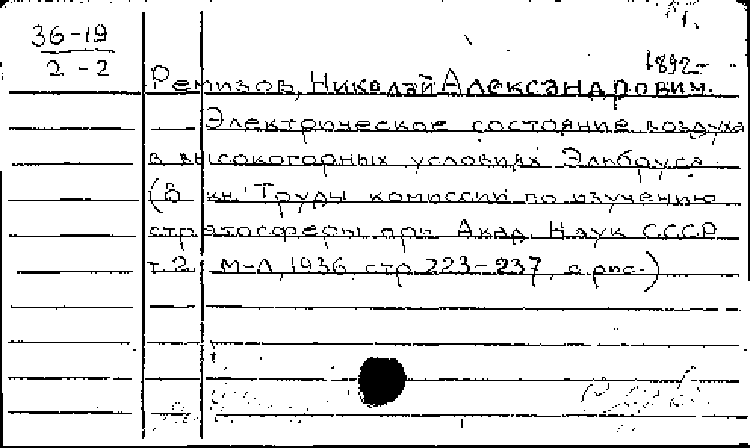 36-19
2-2
1892-
Ремизов, Николай Александрович.
Электрическое состояние воздуха
в высокогорных условиях Эльбруса
(В кн. Труды комиссии по изучению
стратосферы при Акад. Наук С.С.С.Р.
т.2, М-Л, 1936, стр. 223-237, с рис.)